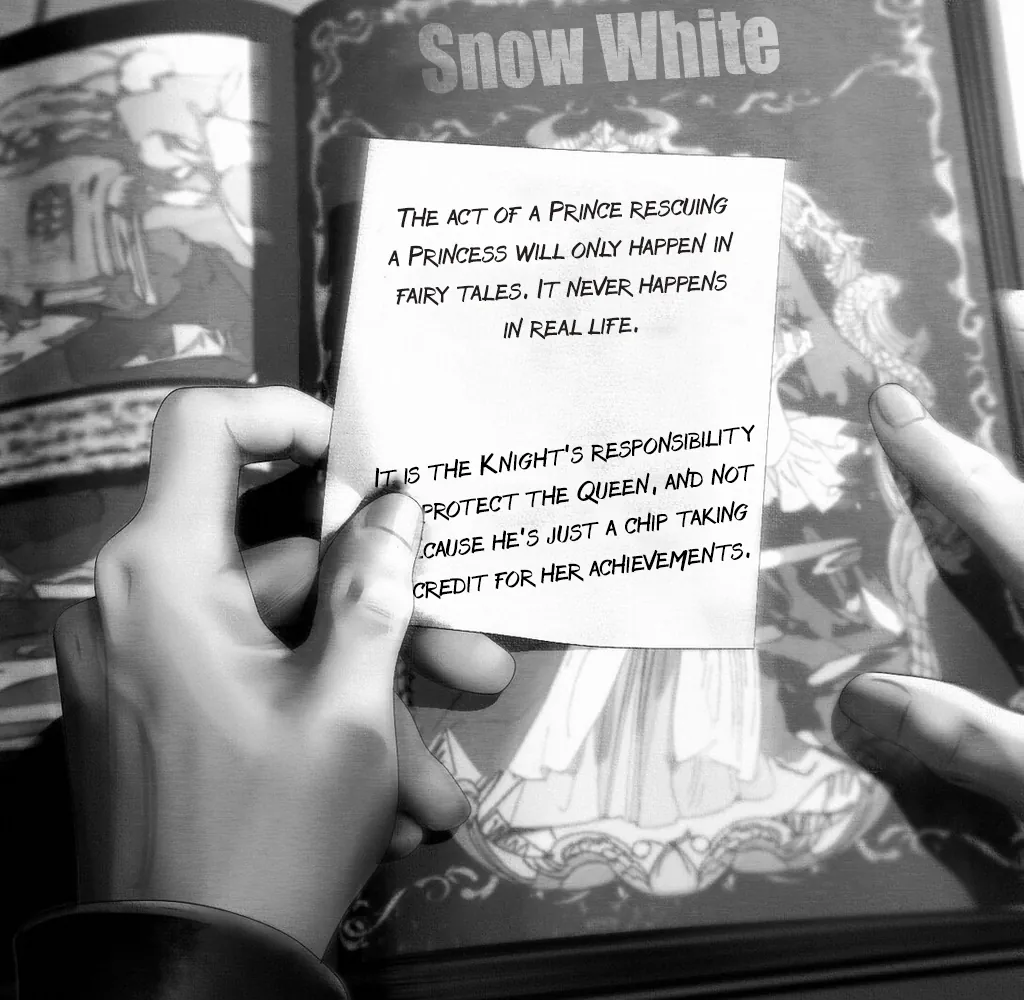 Snow White
The act of a Prince rescuing
a Princess will only happen in
fairy tales. It never happens
in real life.
It is the Knight's responsibility
protect the Queen, and not
he's just a chip taking
credit for her achievements.